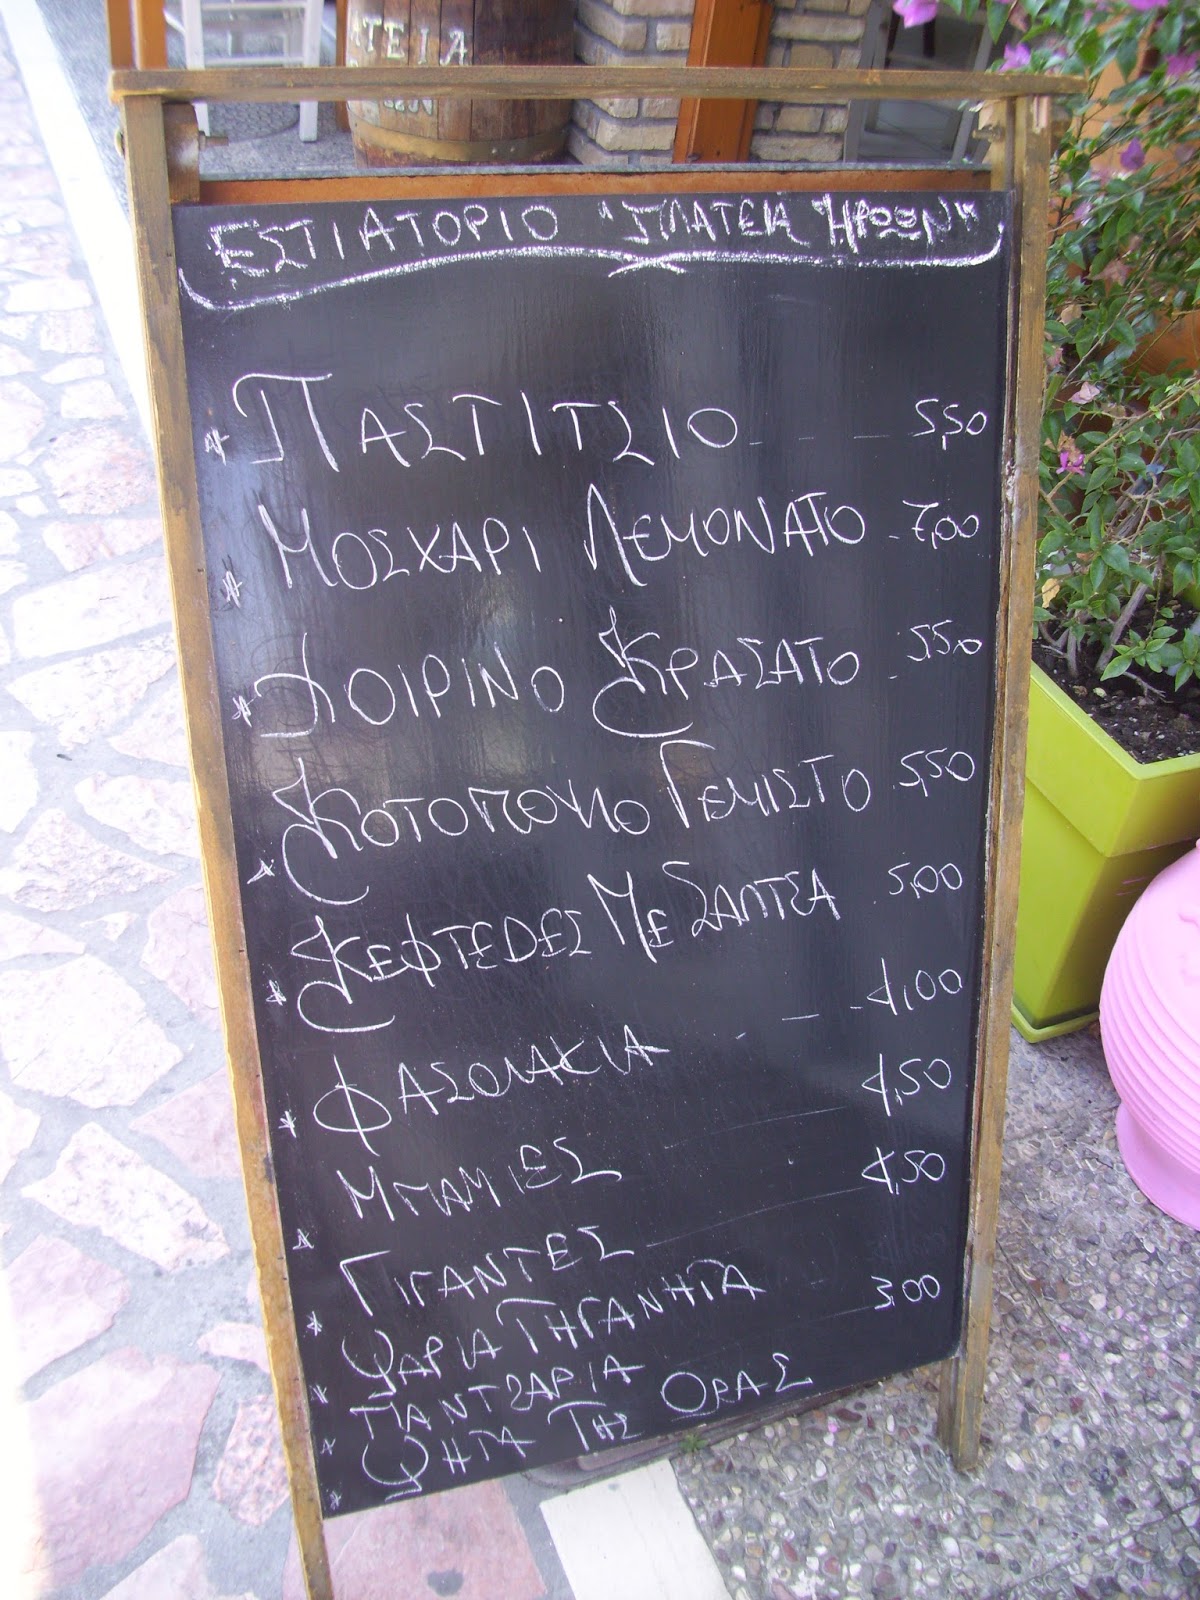 ΤΕΙΑ
ΕΣΤΙΑΤΟΡΙΟ "ΠΛΑΤΕΙΑ ΗΡΩΩΝ"
* ΠΑΣΤΙΤΣΙΟ - - - 5,50
* ΜΟΣΧΑΡΙ ΛΕΜΟΝΑΤΟ - 7,00
* ΧΟΙΡΙΝΟ ΚΡΑΣΑΤΟ - 5,50
* ΚΟΤΟΠΟΥΛΟ ΓΕΜΙΣΤΟ 5,50
* ΚΕΦΤΕΔΕΣ ΜΕ ΣΑΛΤΣΑ 5,00
* ΦΑΣΟΛΑΚΙΑ - - - 4,00
* ΜΠΑΜΙΕΣ - 4,50
* ΓΙΓΑΝΤΕΣ - 4,50
* ΨΑΡΙΑ ΤΗΓΑΝΗΤΑ
* ΠΑΝΤΖΑΡΙΑ 3,00
* ΨΗΤΑ ΤΗΣ ΩΡΑΣ